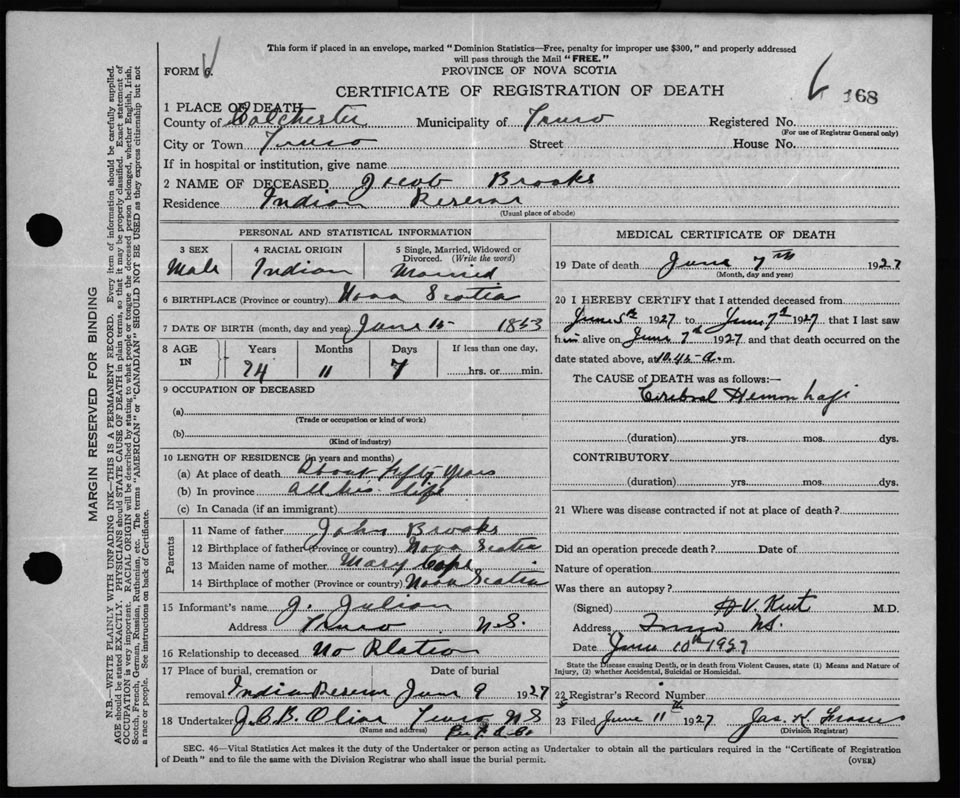 This form if placed in an envelope, marked "Dominion Statistics—Free, penalty for improper use $300," and properly addressed
will pass through the Mail "FREE."
FORM 6.
PROVINCE OF NOVA SCOTIA
CERTIFICATE OF REGISTRATION OF DEATH
168
1 PLACE OF DEATH
County of Colchester Municipality of Truro Registered No.
(For use of Registrar General only)
City or Town Truro Street House No.
If in hospital or institution, give name
2 NAME OF DECEASED Jacob Brooks
Residence Indian Reserve
(Usual place of abode)
PERSONAL AND STATISTICAL INFORMATION
3 SEX 4 RACIAL ORIGIN 5 Single, Married, Widowed or
Divorced. (Write the word)
Male Indian Married
6 BIRTHPLACE (Province or country) Nova Scotia
7 DATE OF BIRTH (month, day and year) June 15 1853
8 AGE IN Years Months Days If less than one day,
74 11 7 hrs. or min.
9 OCCUPATION OF DECEASED
(a)
(Trade or occupation or kind of work)
(b)
(Kind of industry)
10 LENGTH OF RESIDENCE (in years and months)
(a) At place of death About fifty years
(b) In province all his life
(c) In Canada (if an immigrant)
Parents
11 Name of father John Brooks
12 Birthplace of father (Province or country) Nova Scotia
13 Maiden name of mother Mary Cope
14 Birthplace of mother (Province or country) Nova Scotia
15 Informant's name J. Julian
Address Truro N.S.
16 Relationship to deceased No Relation
17 Place of burial, cremation or Date of burial
removal Indian Reserve June 9 1927
18 Undertaker J.C.B. Truro N S
(Name and address)
MEDICAL CERTIFICATE OF DEATH
19 Date of death June 7th 1927
(Month, day and year)
20 I HEREBY CERTIFY that I attended deceased from
June 5th 1927 to June 7th 1927 that I last saw
him alive on June 7th 1927 and that death occurred on the
date stated above, at 10.45 a.m.
The CAUSE of DEATH was as follows:—
Cerebral Hemorrhage
(duration) yrs. mos. dys.
CONTRIBUTORY
(duration) yrs. mos. dys.
21 Where was disease contracted if not at place of death?
Did an operation precede death? Date of
Nature of operation
Was there an autopsy?
(Signed) H V. Kent M.D.
Address Truro N.S.
Date June 10th 1927
State the Disease causing Death, or in death from Violent Causes, state (1) Means and Nature of
Injury, (2) whether Accidental, Suicidal or Homicidal.
22 Registrar's Record Number
23 Filed June 11th 1927 Jas. K. Fraser
(Division Registrar)
SEC. 46—Vital Statistics Act makes it the duty of the Undertaker or person acting as Undertaker to obtain all the particulars required in the "Certificate of Registration
of Death" and to file the same with the Division Registrar who shall issue the burial permit.
(OVER)
MARGIN RESERVED FOR BINDING
N.B.—WRITE PLAINLY WITH UNFADING INK—THIS IS A PERMANENT RECORD. Every item of information should be carefully supplied.
AGE should be stated EXACTLY. PHYSICIANS should STATE CAUSE OF DEATH in plain terms, so that it may be properly classified. Exact statement of
OCCUPATION is very important. RACIAL ORIGIN will be described by stating to what people or tongue the deceased person belonged, whether English, Irish,
Scotch, French, German, Russian, Ruthenian, etc. The terms "AMERICAN" or "CANADIAN" SHOULD NOT BE USED as they express citizenship but not
a race or people. See instructions on back of Certificate.